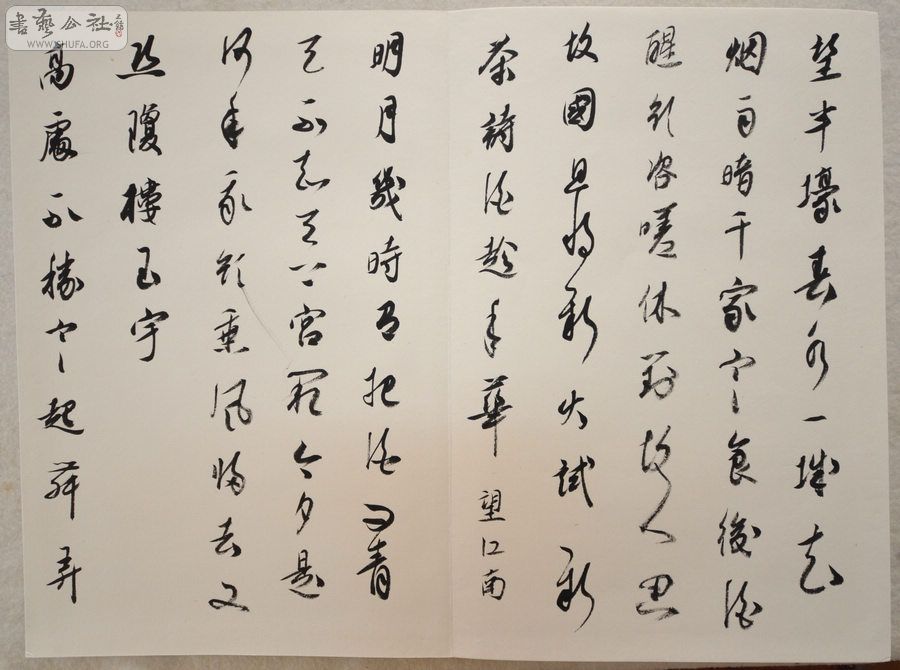 望半壕春水一城花
烟雨暗千家寒食後酒
醒卻咨嗟休對故人思
故國且將新火試新
茶詩酒趁年華 望江南
明月幾時有把酒問青
天不知天上宮闕今夕是
何年我欲乘風歸去又
恐瓊樓玉宇
高處不勝寒起舞弄
書藝公社
WWW.SHUFA.ORG